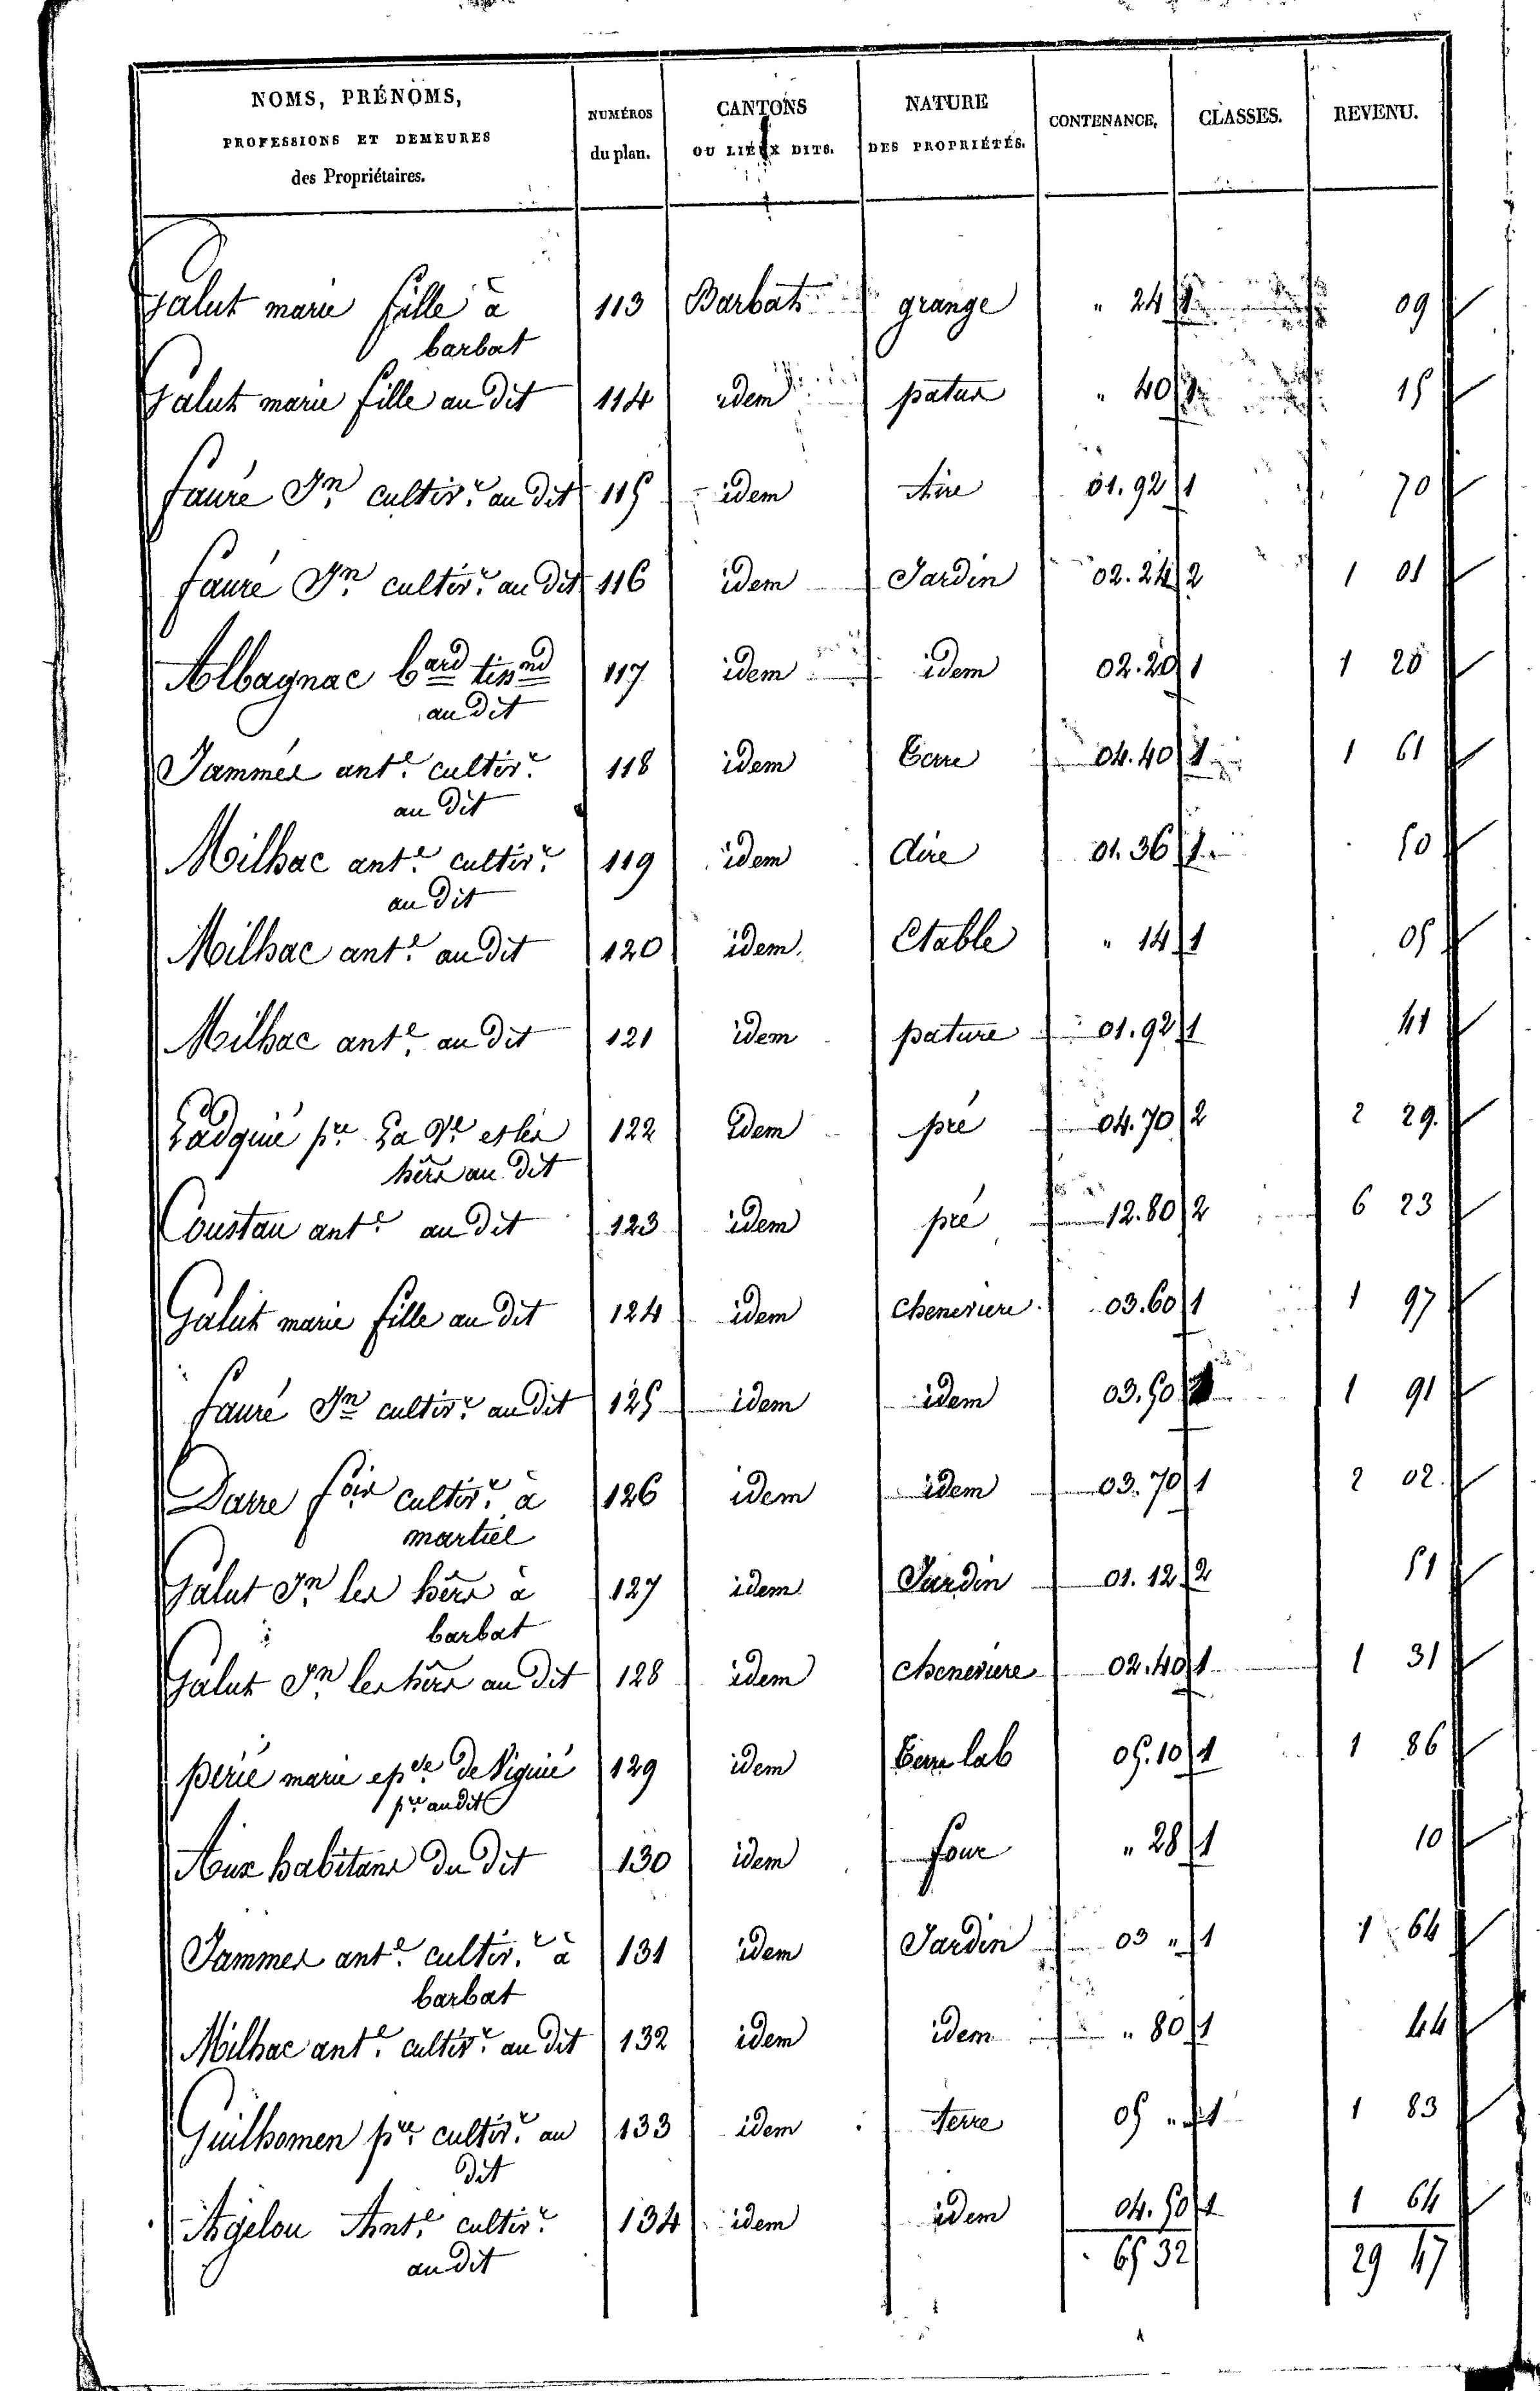 NOMS, PRÉNOMS, PROFESSIONS ET DEMEURES des Propriétaires. NUMÉROS du plan. CANTONS OU LIEUX DITS. NATURE DES PROPRIÉTÉS. CONTENANCE. CLASSES. REVENU.
Galut marie fille à 113 Barbat grange " 24 1 09
barbat
Galut marie fille au dit 114 idem patur " 40 1 15
fauré Jn cultivr au dit 115 idem Aire 01.92 1 70
fauré Jn cultivr au dit 116 idem Jardin 02.24 2 1 01
Albagnac bard tissnd 117 idem idem 02.20 1 1 20
au dit
Jammes ante cultivr 118 idem Terre 04.40 1 1 61
au dit
Milhac ante cultivr 119 idem aire 01.36 1 50
au dit
Milhac ante au dit 120 idem Etable " 14 1 05
Milhac ante au dit 121 idem pature 01.92 1 41
Ladquié pre La Ve et les 122 idem pré 04.70 2 2 29.
hérs au dit
Coustau ante au dit 123 idem pré 12.80 2 6 23
Galut marie fille au dit 124 idem cheneviere 03.60 1 1 97
fauré Jn cultivr au dit 125 idem idem 03.50 1 91
Darre fois cultivr à 126 idem idem 03.70 1 2 02.
martiel
Galut Jn les hêrs à 127 idem Jardin 01.12 2 51
barbat
Galut Jn les hêrs au dit 128 idem cheneviere 02.40 1 1 31
perié marie epse de Viguié 129 idem Terre lab 05.10 1 1 86
pre au dit
Aux habitans du dit 130 idem four " 28 1 10
Jammes ante cultivr à 131 idem Jardin 03 " 1 1 64
barbat
Milhac ante cultivr au dit 132 idem idem " 80 1 44
Guilhomen pre cultivr au 133 idem terre 05 " 1 1 83
dit
Agelou Ante cultivr 134 idem idem 04.50 1 1 64
au dit
65 32 29 47